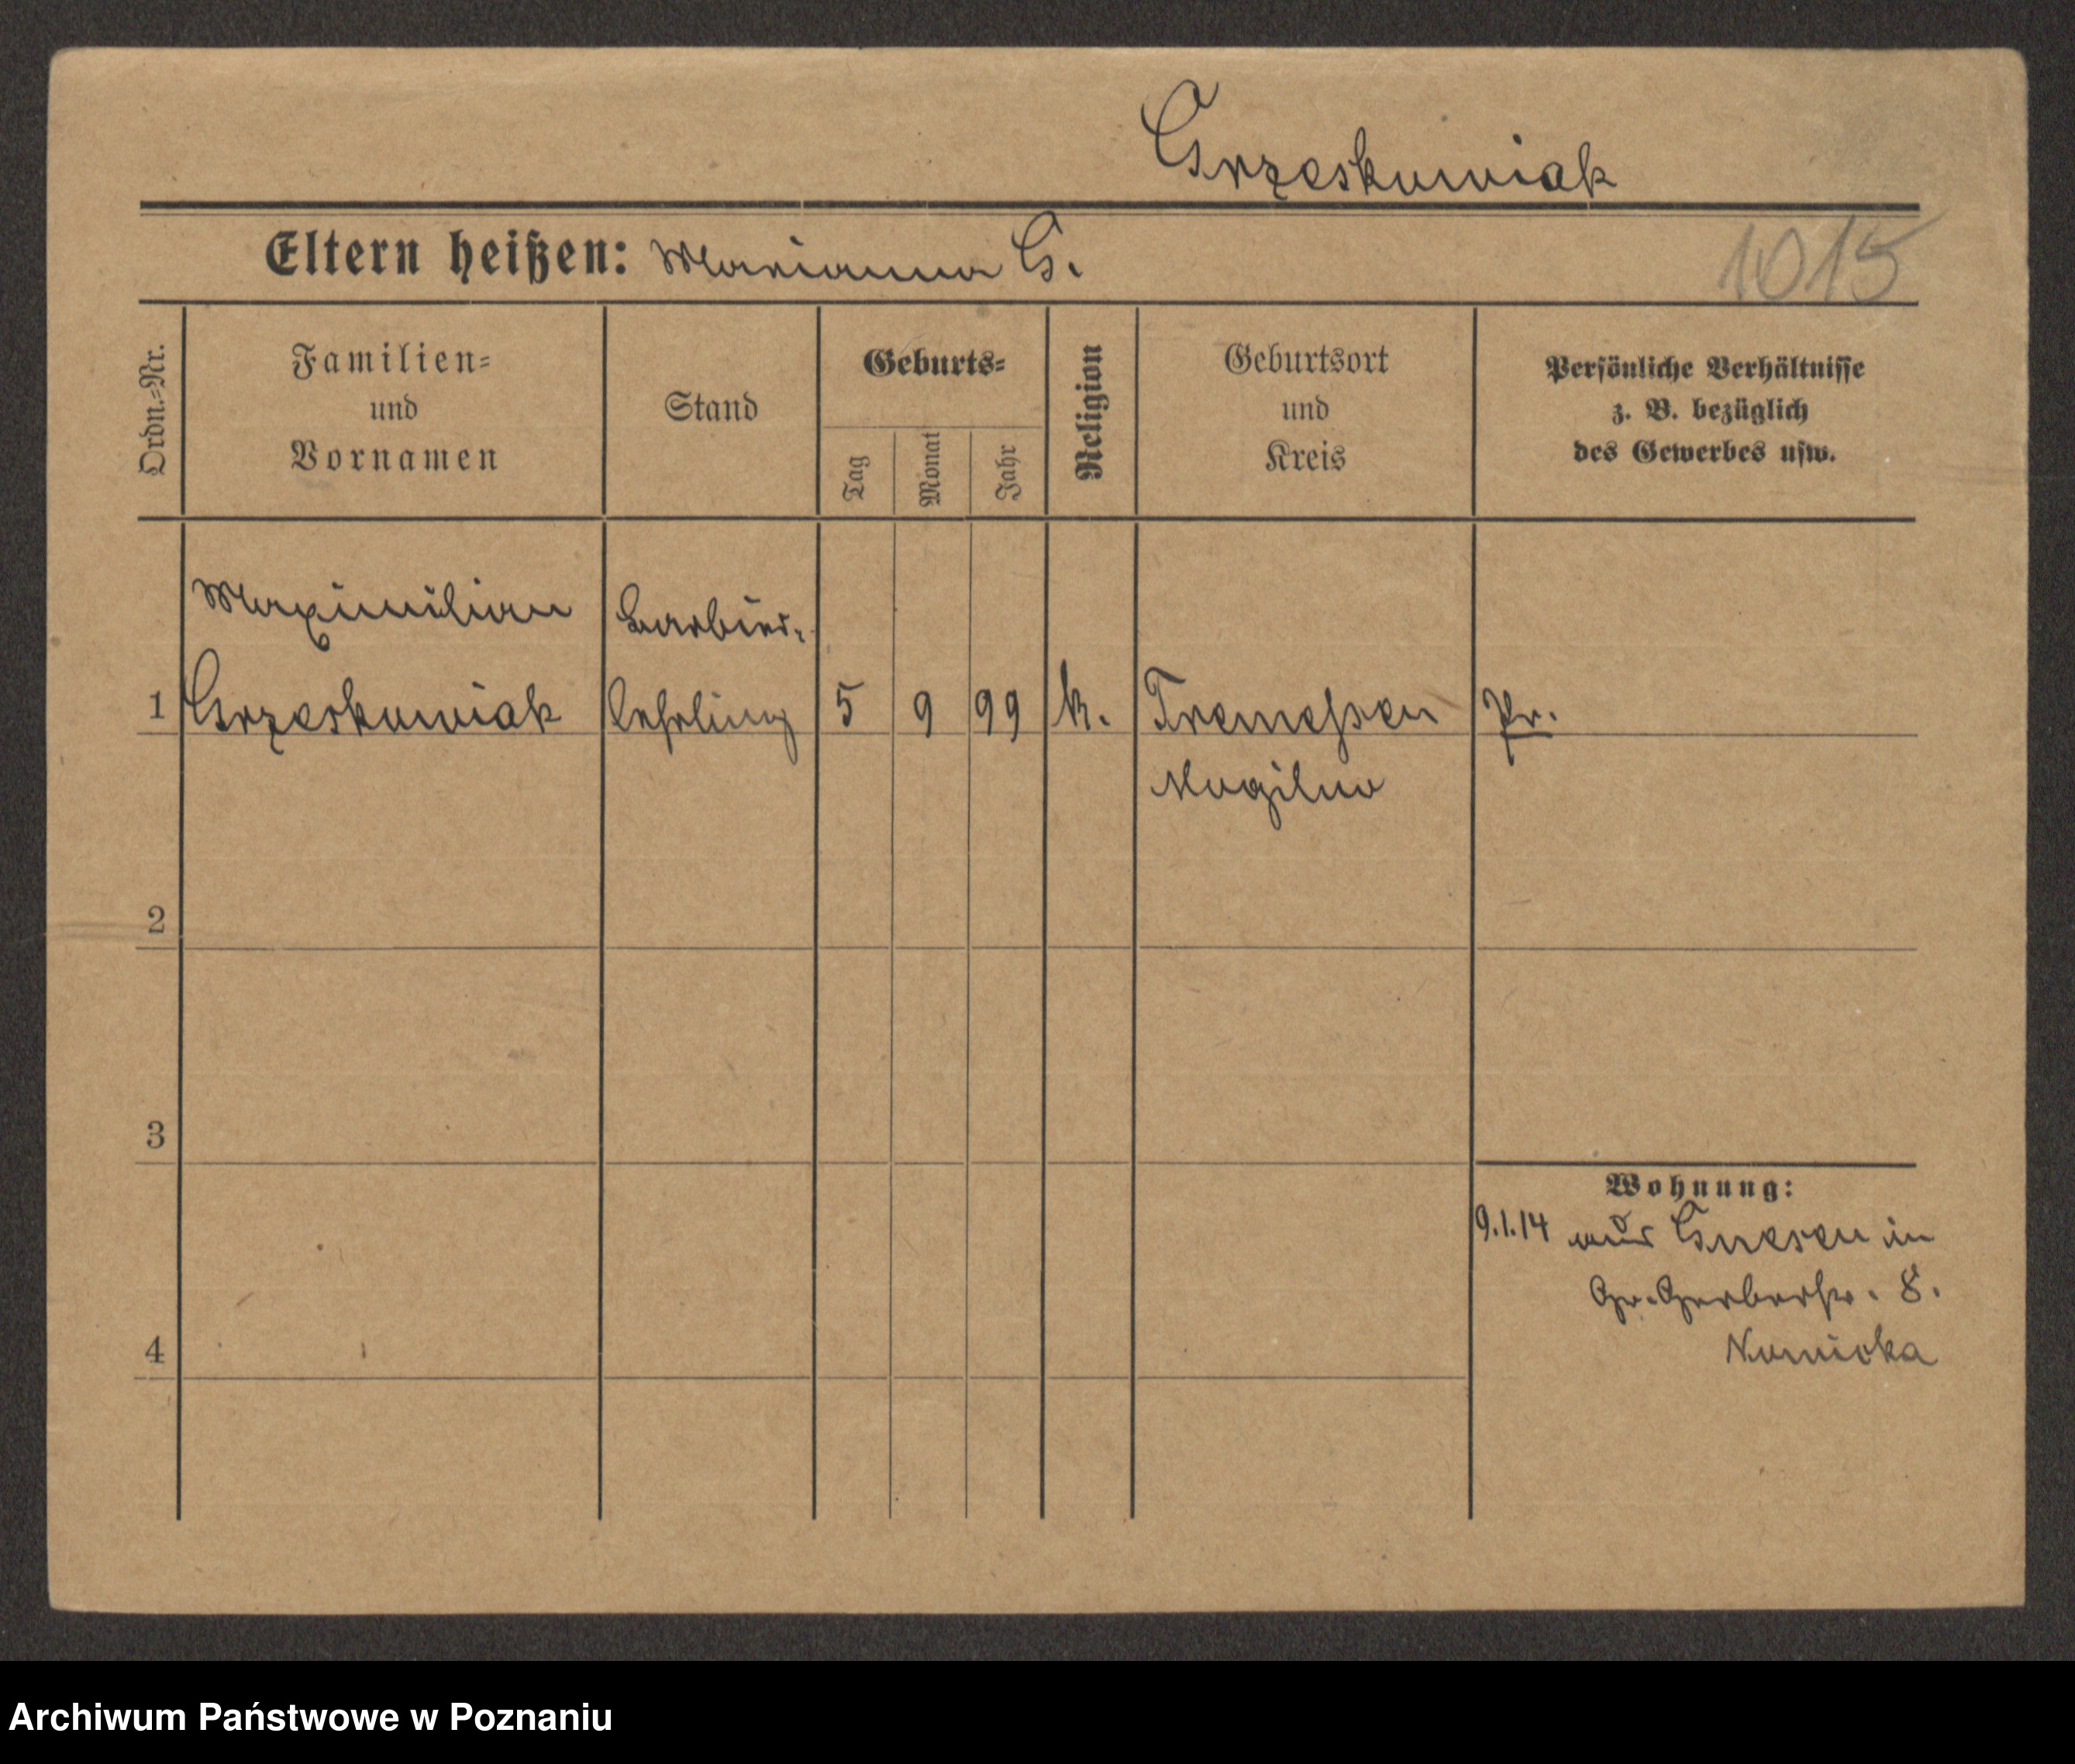 Grzeskowiak
Eltern heißen: Marianna G.
1015
Ordn.-Nr.
Familien-
und
Vornamen
Stand
Geburts-
Tag
Monat
Jahr
Religion
Geburtsort
und
Kreis
Persönliche Verhältnisse
z. B. bezüglich
des Gewerbes usw.
Maximilian Barbier-
1 Grzeskowiak lehrling 5 9 99 k. Tremessen Pr.
Mogilno
2
3
Wohnung:
9.1.14 aus Gnesen in
Gr. Gerberstr. 8.
Nowicka
4
Archiwum Państwowe w Poznaniu